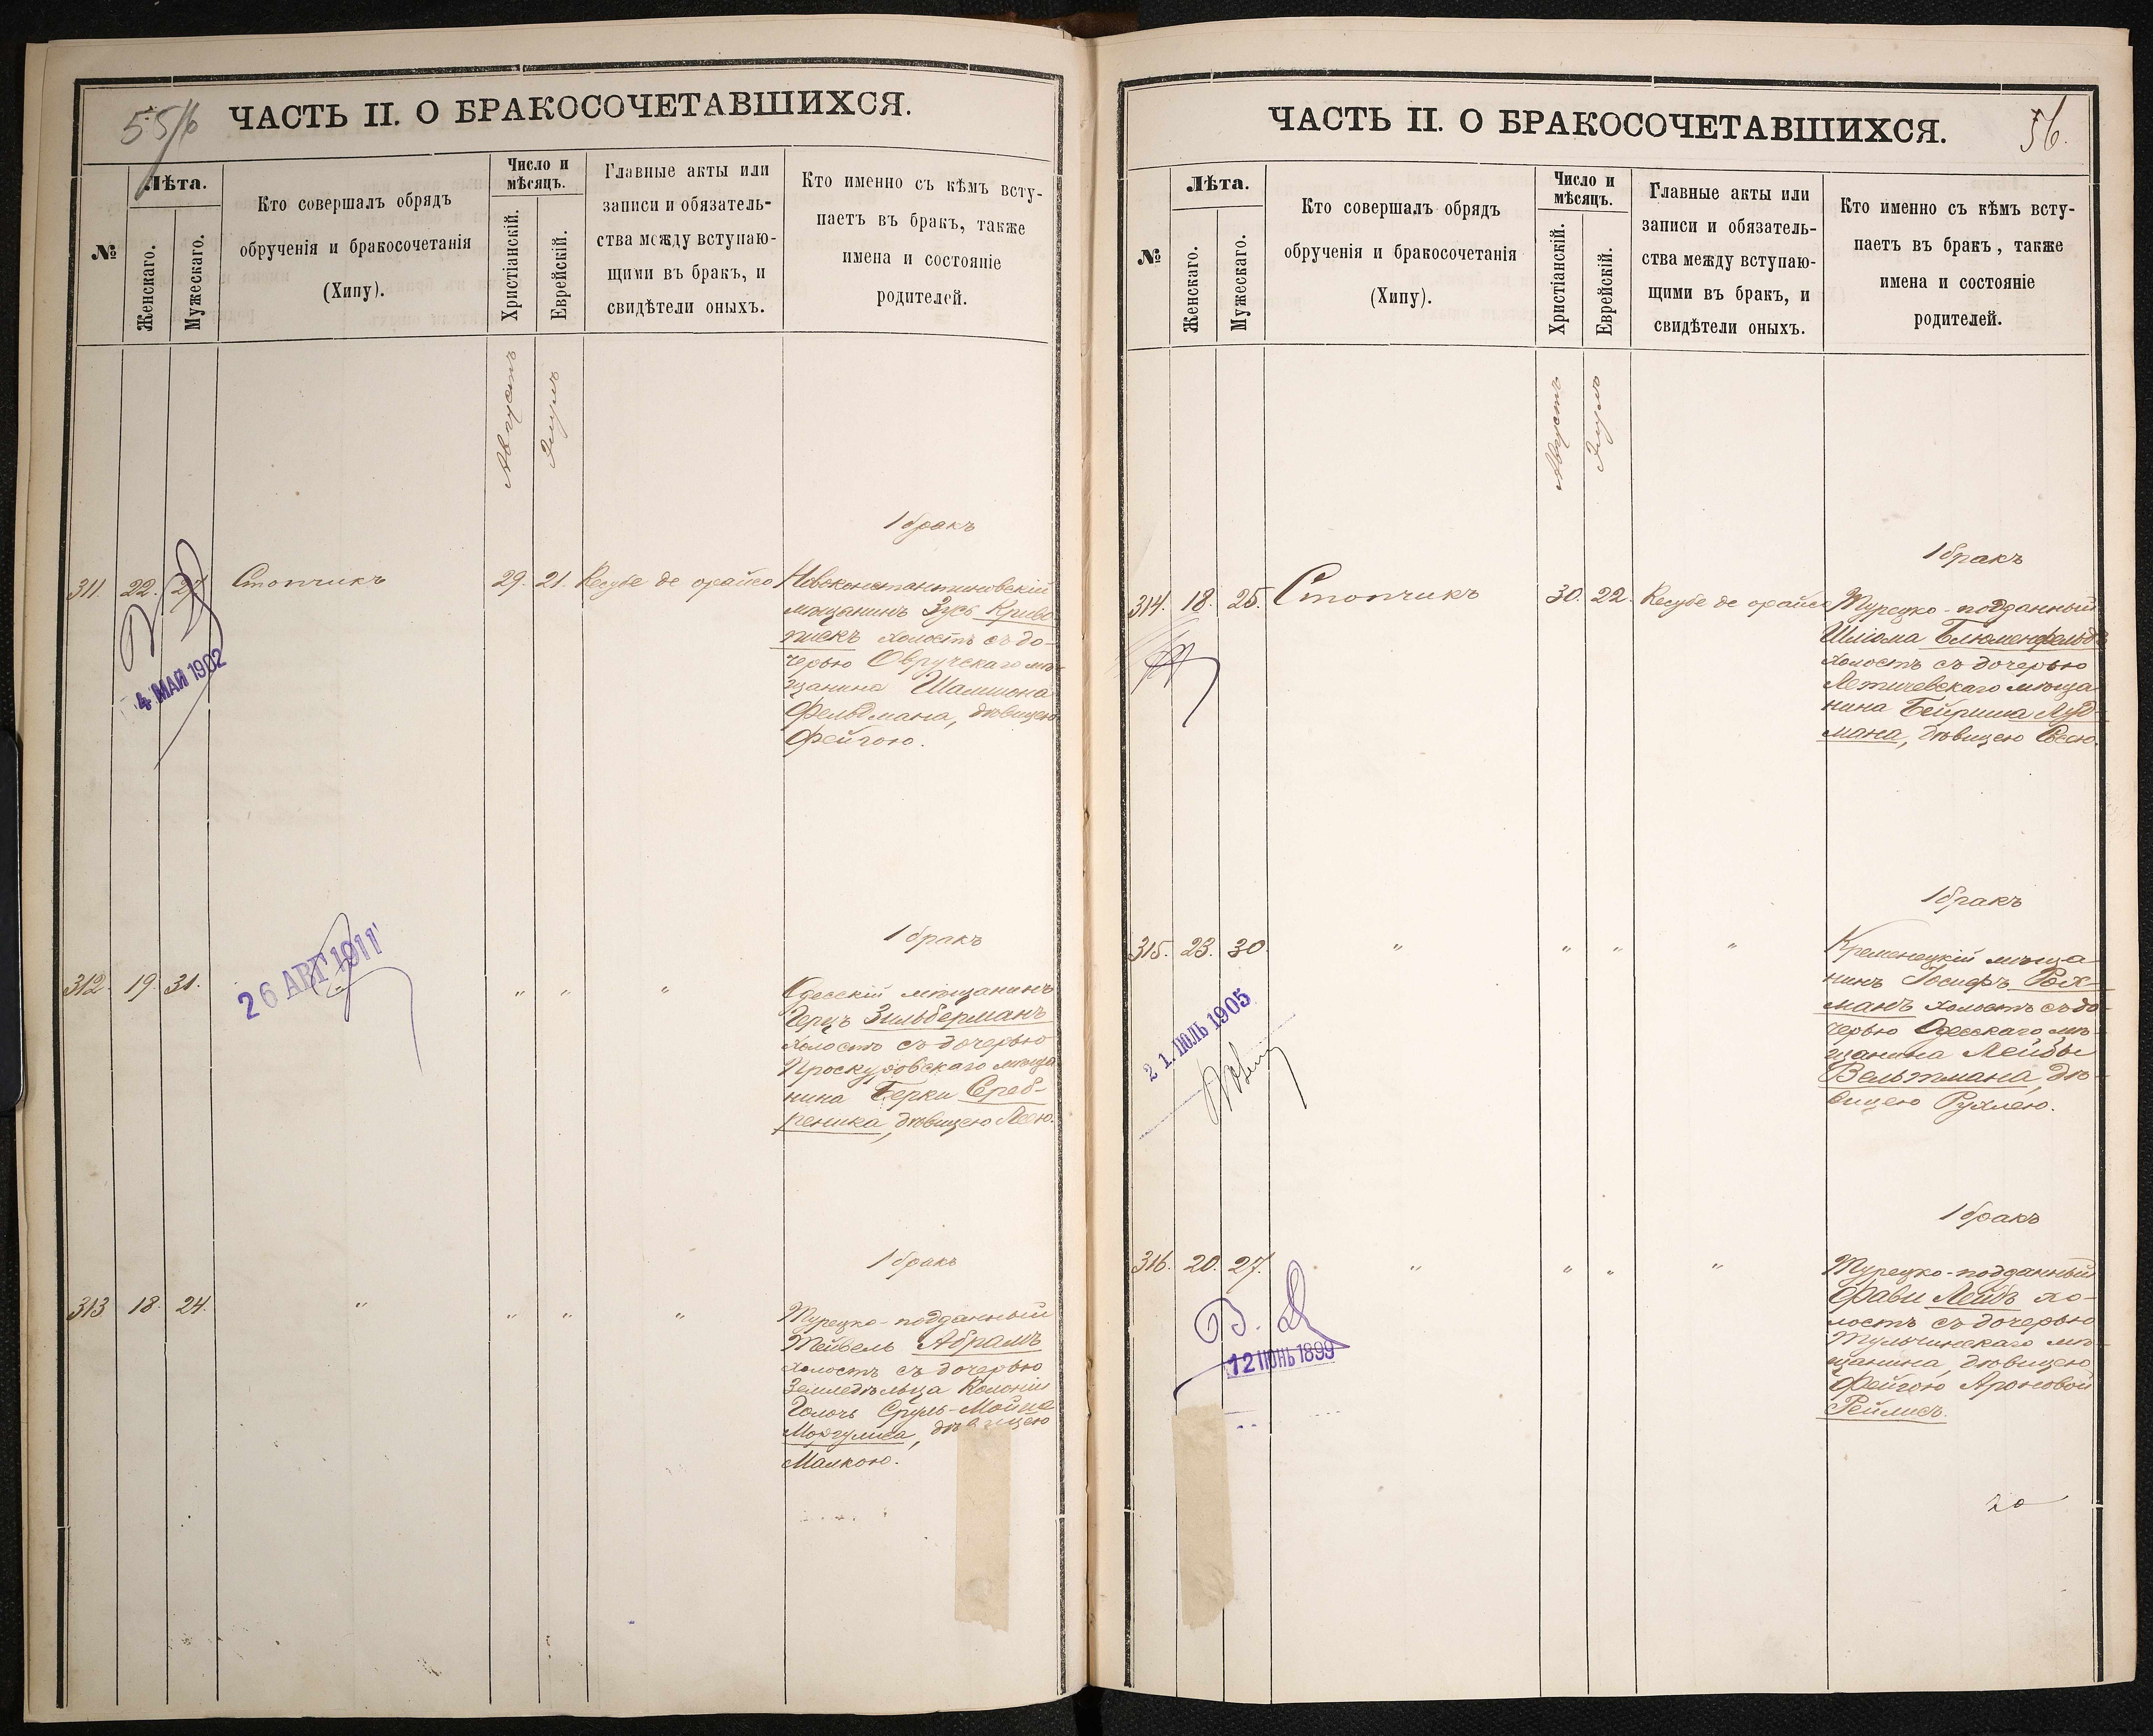 55/б
ЧАСТЬ II. О БРАКОСОЧЕТАВШИХСЯ.
№
Лѣта.
Женскаго.
Мужескаго.
Кто совершалъ обрядъ
обрученія и бракосочетанія
(Хипу).
Число и
мѣсяцъ.
Христіанскій.
Еврейскій.
Главные акты или
записи и обязатель-
ства между вступаю-
щими въ бракъ, и
свидѣтели оныхъ.
Кто именно съ кѣмъ всту-
паетъ въ бракъ, также
имена и состояніе
родителей.
Августъ
Элулъ
1 бракъ
311. 22. 27. Стопчикъ 29. 21. Кесубе де орайсо Новоконстантиновскій
мѣщанинъ Зусь Криво
холостъ съ до-
черью Овручскаго мѣ-
щанина Шамшона
Фельдмана, дѣвицею
Фейгою.
4 МАЙ 1902
1 бракъ
312. 19. 31. " " " Одесскій мѣщанинъ
Герцъ Зильберманъ
холостъ съ дочерью
Проскуровскаго мѣща
нина Берки Среб-
реника, дѣвицею Леею.
26 АВГ 1911
1 бракъ
313 18. 24. " " " " Турецко-подданный
Тейвель Абрамъ
холостъ съ дочерью
Земледѣльца Колоніи
Сруль-Мойше
Моргулиса, дѣвицею
Малкою.
ЧАСТЬ II. О БРАКОСОЧЕТАВШИХСЯ.
56.
№
Лѣта.
Женскаго.
Мужескаго.
Кто совершалъ обрядъ
обрученія и бракосочетанія
(Хипу).
Число и
мѣсяцъ.
Христіанскій.
Еврейскій.
Главные акты или
записи и обязатель-
ства между вступаю-
щими въ бракъ, и
свидѣтели оныхъ.
Кто именно съ кѣмъ всту-
паетъ въ бракъ, также
имена и состояніе
родителей.
Августъ
Элулъ
1 бракъ
314. 18. 25. Стопчикъ 30. 22. Кесубе де орайсо Турецко-подданный
Шліома Блюменфельдъ
холостъ съ дочерью
Летичевскаго мѣща
нина Бейриша Луд-
мана, дѣвицею
1 бракъ
315. 23. 30. " " " " Кременецкій мѣща-
нинъ Іосифъ Рой-
манъ холостъ съ до-
черью Одесскаго мѣ-
щанина Лейбы
Вельтмана, дѣ-
вицею Рухлею.
21. ІЮЛЬ 1905
1 бракъ
316. 20. 27. " " " " Турецко-подданный
Фави Лейбъ хо-
лостъ съ дочерью
Тульчинскаго мѣ-
щанина, дѣвицею
Фейгою Ароновой
Рейлисъ.
12 ІЮНЬ 1899